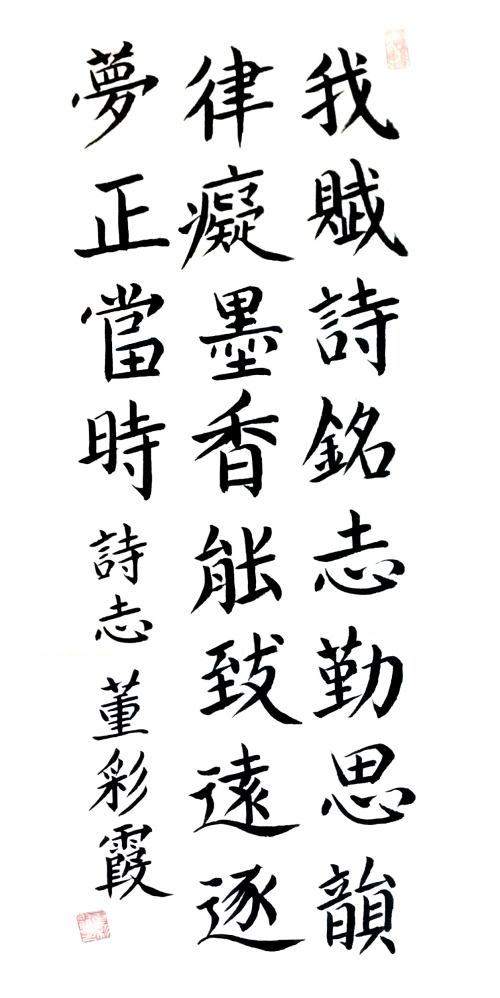 我賦詩銘志勤思韻
律癡墨香能致遠逐
夢正當時
詩志 董彩霞